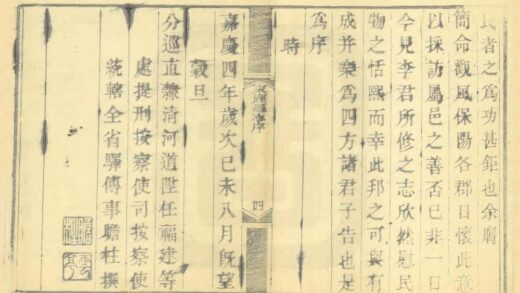 民者之為功甚鉅也余膺
簡命觀風保陽各郡日懷此意
以採訪屬邑之善否已非一日
今見李君所修之志欣然慰民
物之恬熙而幸此邦之可與有
成并樂爲四方諸君子告也是
爲序
時
序
四
嘉慶四年歲次己未八月既望
穀旦
分巡直隸清河道陞任福建等
處提刑按察使司按察使
統轄全省驛傳事瞻柱撰